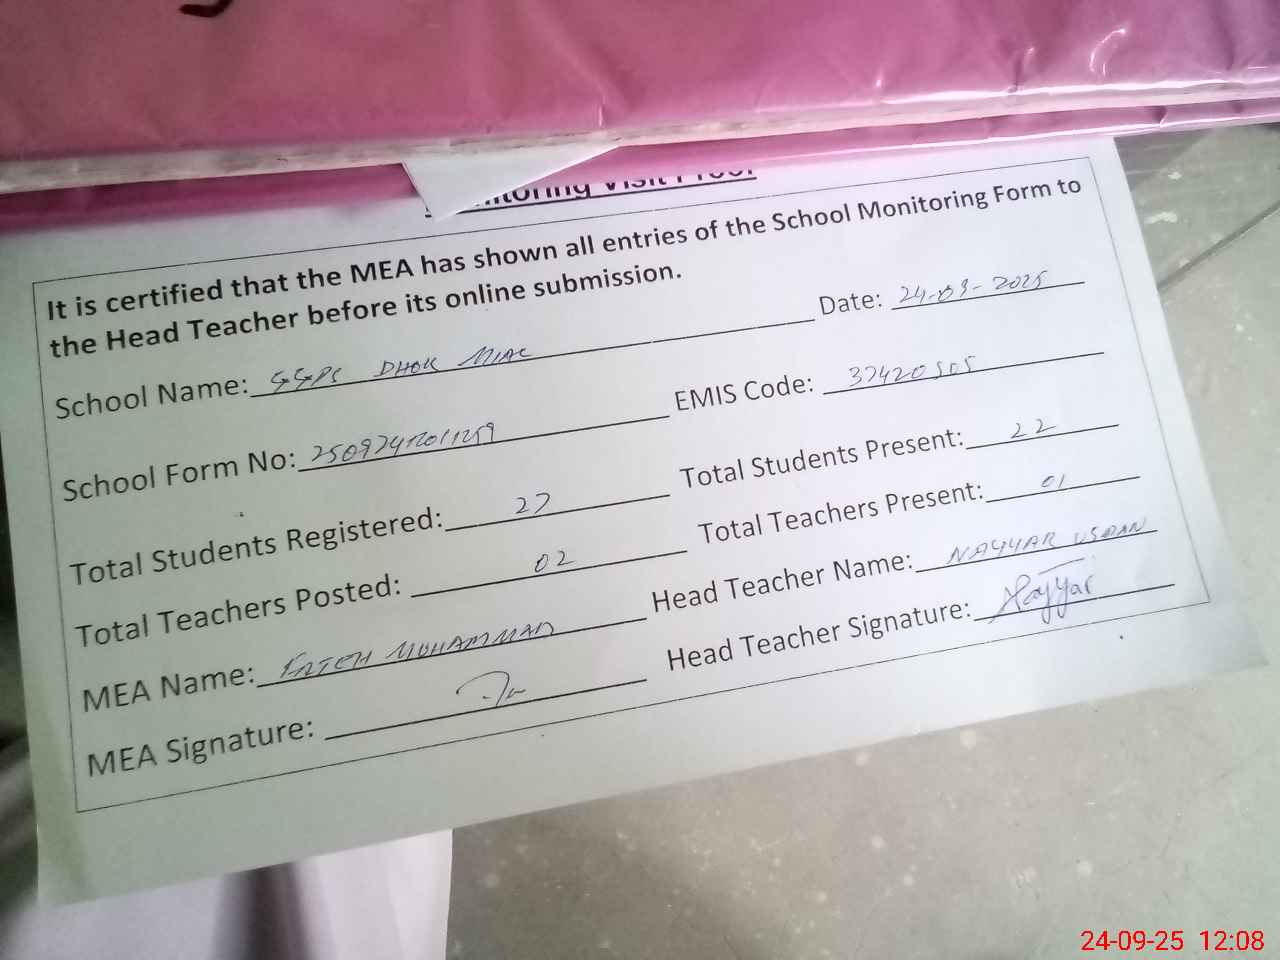 Monitoring Visit Proof
It is certified that the MEA has shown all entries of the School Monitoring Form to
the Head Teacher before its online submission.
School Name: GGPS DHOK MIAL Date: 24-09-2025
School Form No: EMIS Code: 37420505
Total Students Registered: 27 Total Students Present: 22
Total Teachers Posted: 02 Total Teachers Present: 01
MEA Name: FATEH MUHAMMAD Head Teacher Name: NAYYAR USMAN
MEA Signature: Head Teacher Signature: Nayyar
24-09-25 12:08